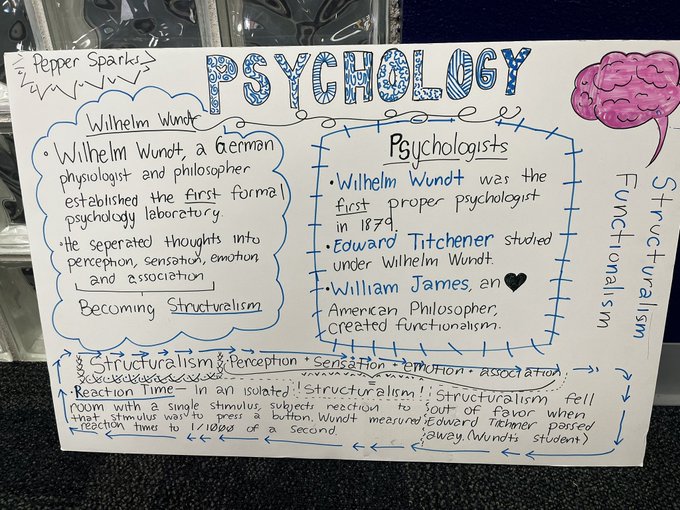 Pepper Sparks
PSYCHOLOGY
Wilhelm Wundt
• Wilhelm Wundt, a German
physiologist and philosopher
established the first formal
psychology laboratory.
• He seperated thoughts into
perception, sensation, emotion,
and association
Becoming Structuralism
Psychologists
• Wilhelm Wundt was the
first proper psychologist
in 1879.
• Edward Titchener studied
under Wilhelm Wundt.
• William James, an
American Philosopher,
created functionalism.
Structuralism
Functionalism
Structuralism Perception + Sensation + emotion + association
=
!Structuralism!
Reaction Time - In an isolated
room with a single stimulus, subjects reaction to
that stimulus was to press a button. Wundt measured
reaction times to 1/1000 of a second.
Structuralism fell
out of favor when
Edward Titchner passed
away. (Wundt's student)